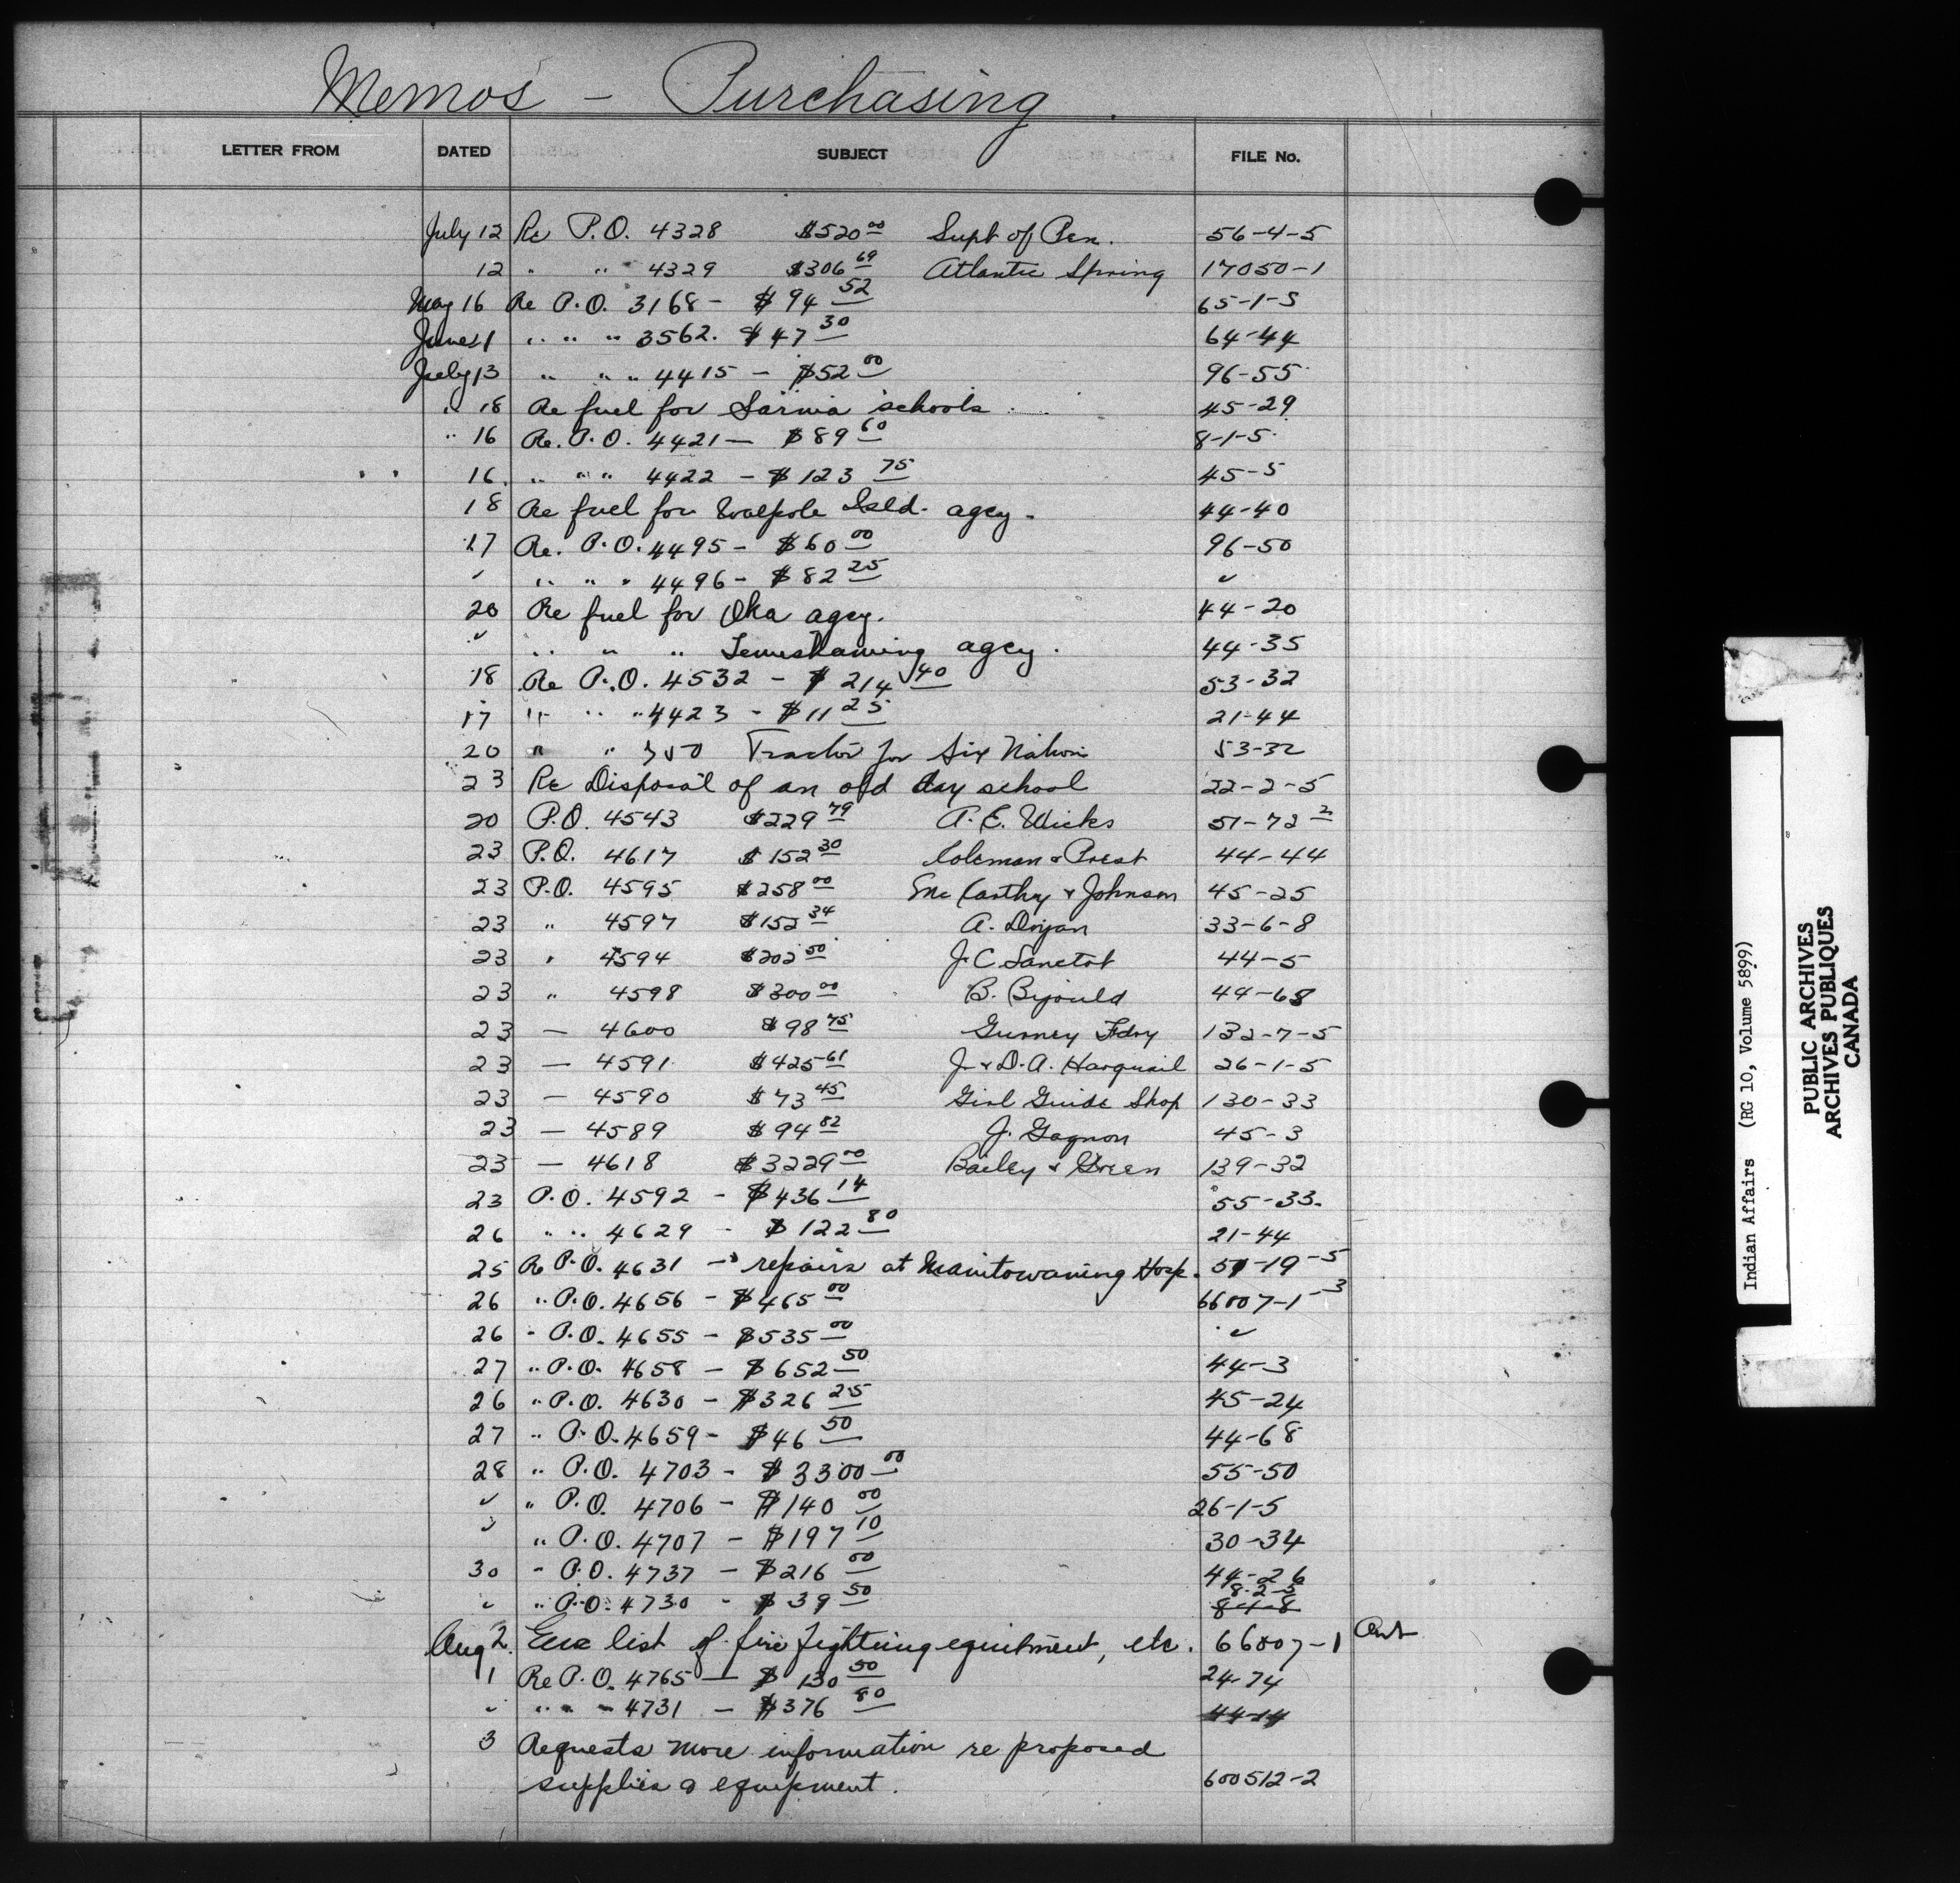 Memos - Purchasing
LETTER FROM DATED SUBJECT FILE No.
July 12 Re P.O. 4328 $520 00 Supt of Pen. 56-4-5
12 " " 4329 $306 69 Atlantic Spring 17050-1
May 16 Re P.O. 3168 - $94 52 65-1-5
June 1 " " " 3562. $47 30 64-44
July 13 " " " 4415 - $52 00 96-55
" 18 Re fuel for Sarnia schools 45-29
" 16 Re. P.O. 4421 - $89 60 8-1-5
16. " " " 4422 - $123 75 45-5
18 Re fuel for Walpole Isld. agcy. 44-40
17 Re. P.O. 4495 - $60 00 96-50
✓ " " " 4496 - $82 25 ✓
20 Re fuel for Oka agcy. 44-20
✓ " " " Temiskaming agcy. 44-35
18 Re P.O. 4532 - $214 40 53-32
17 " " " 4423 - $11 25 21-44
20 " " 350 Tractor for Six Nation 53-32
23 Re Disposal of an old day school 22-2-5
20 P.O. 4543 $229 79 A. E. Wicks 51-72 2
23 P.O. 4617 $152 30 Coleman & Prest 44-44
23 P.O. 4595 $258 00 McCarthy & Johnson 45-25
23 " 4597 $152 34 A. 33-6-8
23 " 4594 $202 50 J. C. Sanctot 44-5
23 " 4598 $300 00 B. 44-68
23 - 4600 $98 75 Gurney Fdry 132-7-5
23 - 4591 $425 61 J. & D. A. Harquail 26-1-5
23 - 4590 $73 45 Girl Guide Shop 130-33
23 - 4589 $94 82 J. Gagnon 45-3
23 - 4618 $3229 00 Bailey & Green 139-32
23 P.O. 4592 - $436 14 55-33.
26 " " 4629 - $122 80 21-44
25 Re P.O. 4631 - repairs at Manitowaning Hosp. 51-19-5
26 " P.O. 4656 - $465 00 66007-1-3
26 - P.O. 4655 - $535 00 ✓
27 " P.O. 4658 - $652 50 44-3
26 " P.O. 4630 - $326 25 45-24
27 " P.O. 4659 - $46 50 44-68
28 " P.O. 4703 - $3300 00 55-50
✓ " P.O. 4706 - $140 00 26-1-5
✓ " P.O. 4707 - $197 10 30-34
30 " P.O. 4737 - $216 00 44-26
8-2-5
" " P.O. 4730 - $39 50 8-1-8
Aug 2. Enc list of fire fighting equitment, etc. 66007-1
1 Re P.O. 4765 - $130 50 24-74
" " " - 4731 - $376 80 44-14
3 Requests more information re proposed
supplies & equipment. 600512-2
Indian Affairs (RG 10, Volume 5899)
PUBLIC ARCHIVES
ARCHIVES PUBLIQUES
CANADA